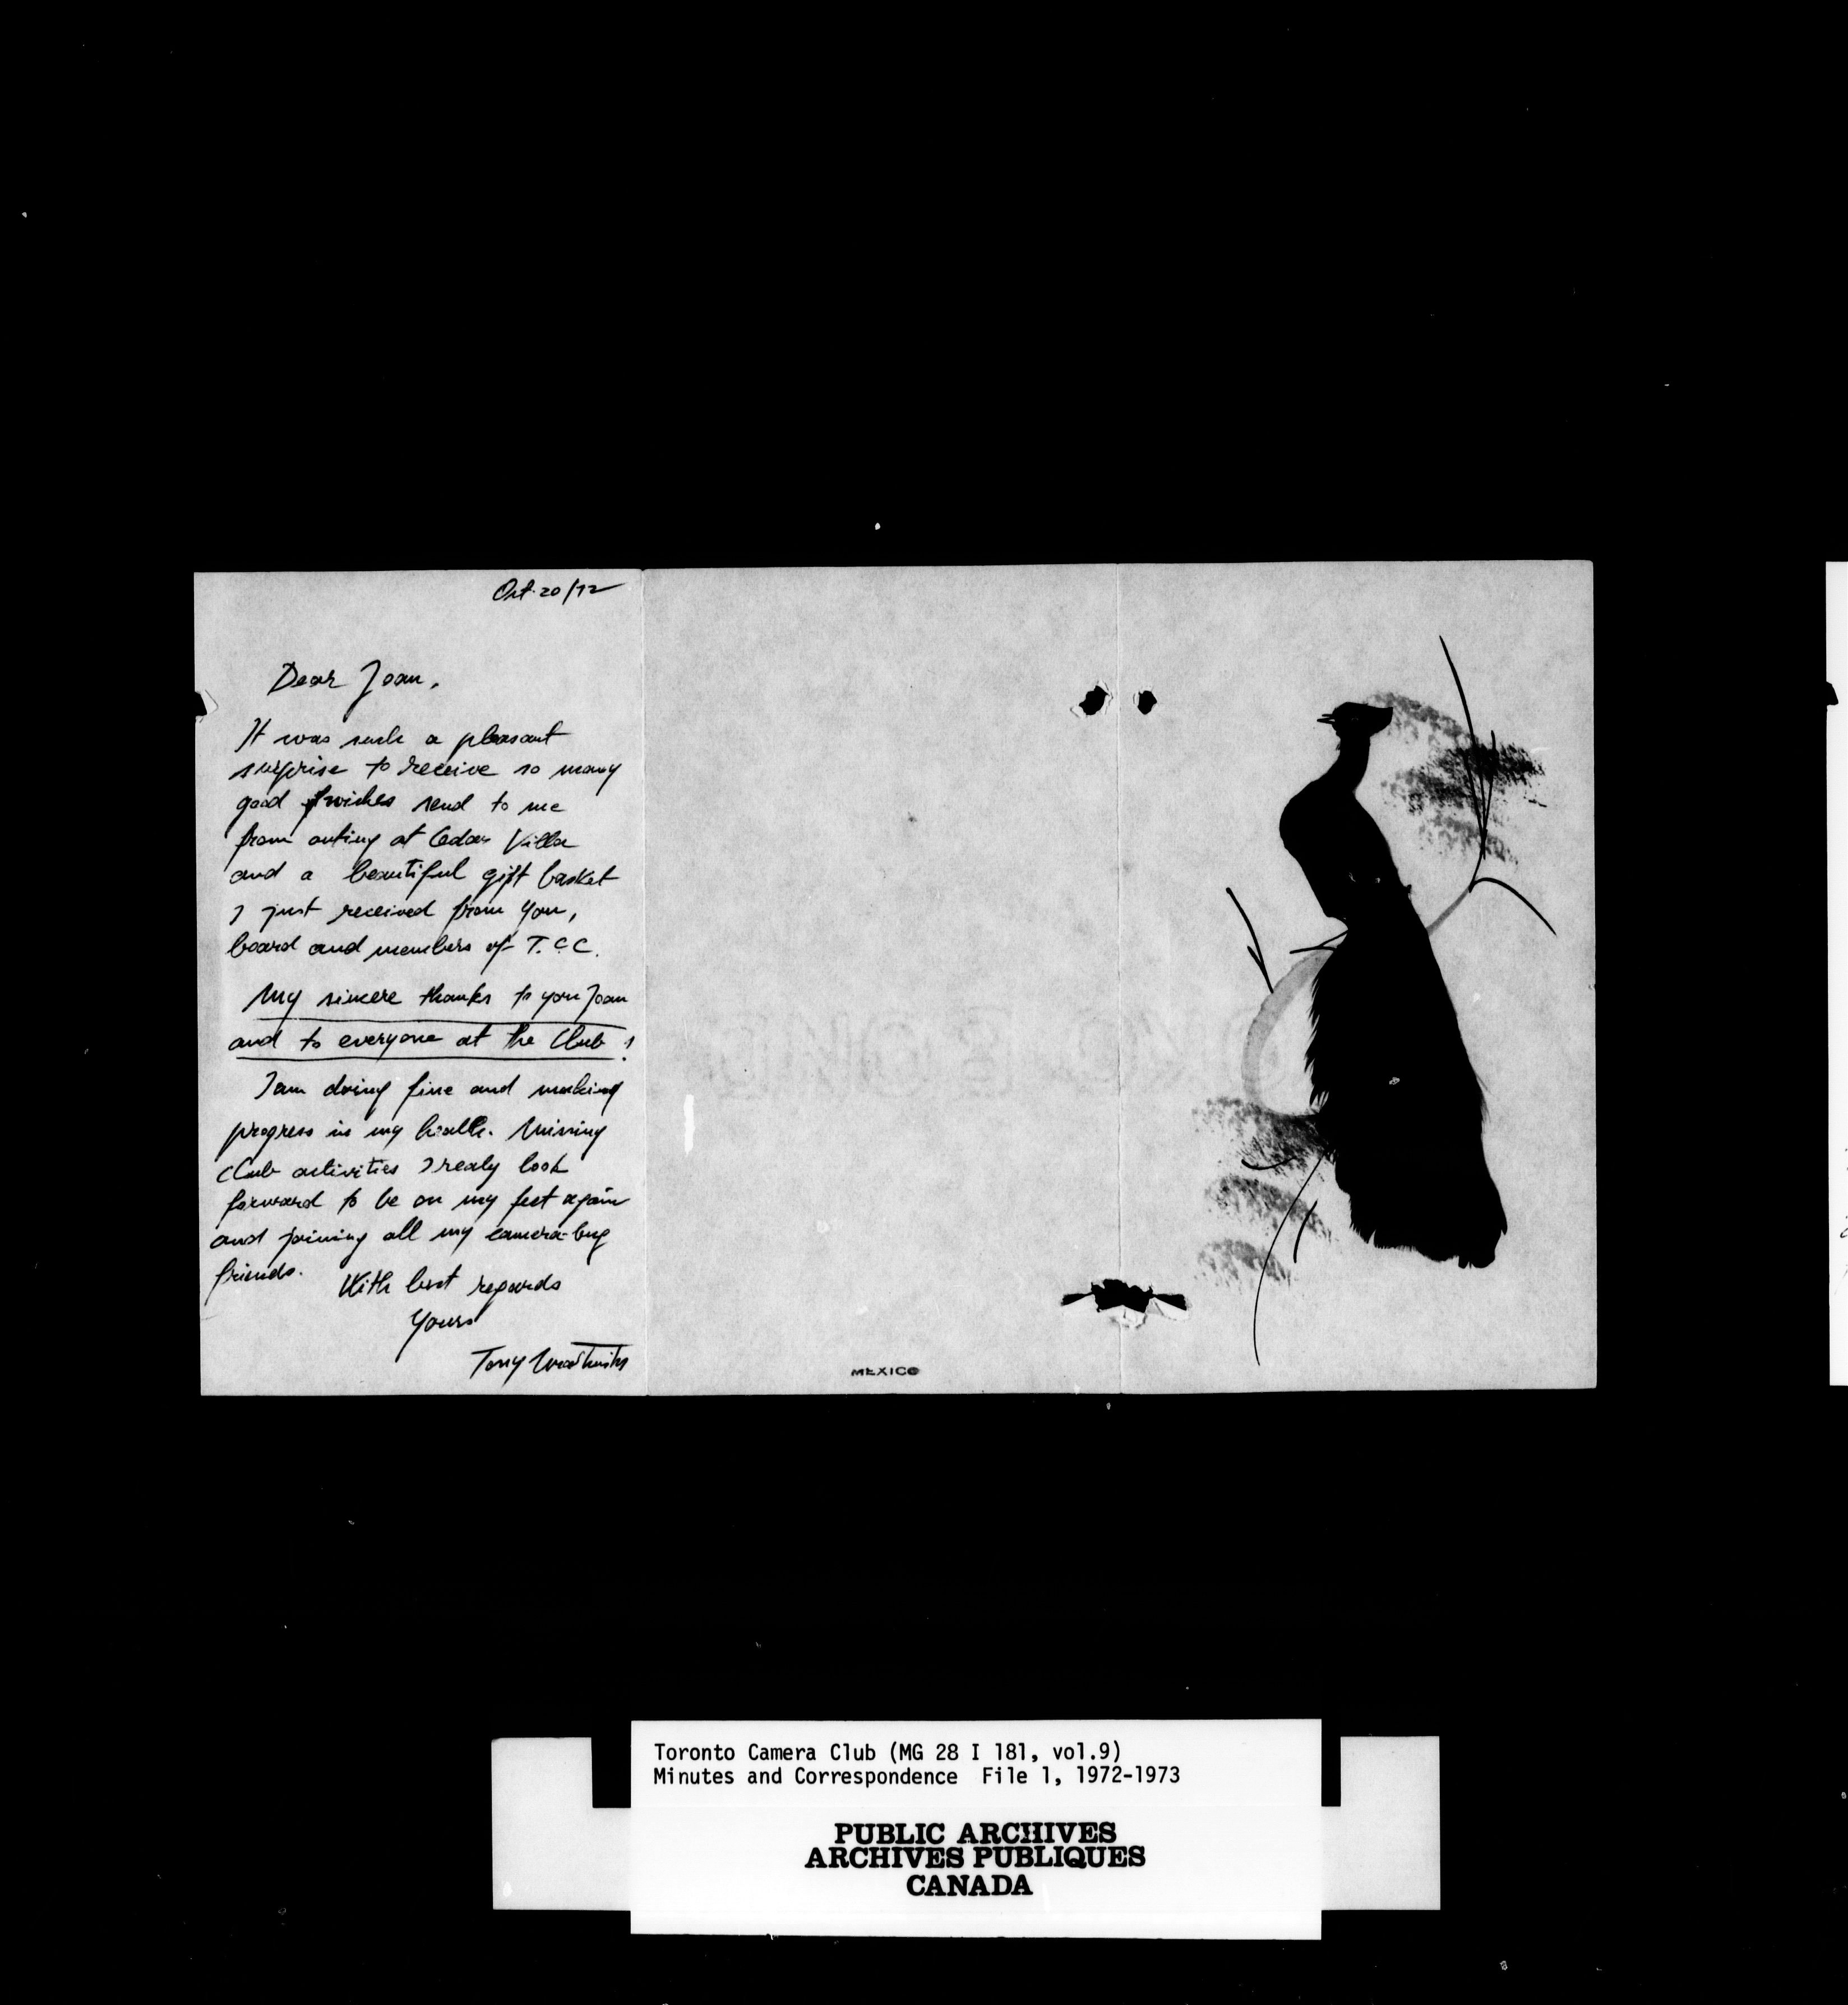 Oct. 20/72
Dear Joan,
It was such a pleasant
surprise to receive so many
good wishes send to me
from outing at Cedar Villa
and a beautiful gift basket
I just received from you,
board and members of T.C.C.
My sincere thanks to you Joan
and to everyone at the Club!
I am doing fine and making
progress in my health. Missing
Club activities I realy look
forward to be on my feet again
and joining all my camera-bug
friends.
With best regards
Yours
Tony
MEXICO
Toronto Camera Club (MG 28 I 181, vol.9)
Minutes and Correspondence File 1, 1972-1973
PUBLIC ARCHIVES
ARCHIVES PUBLIQUES
CANADA